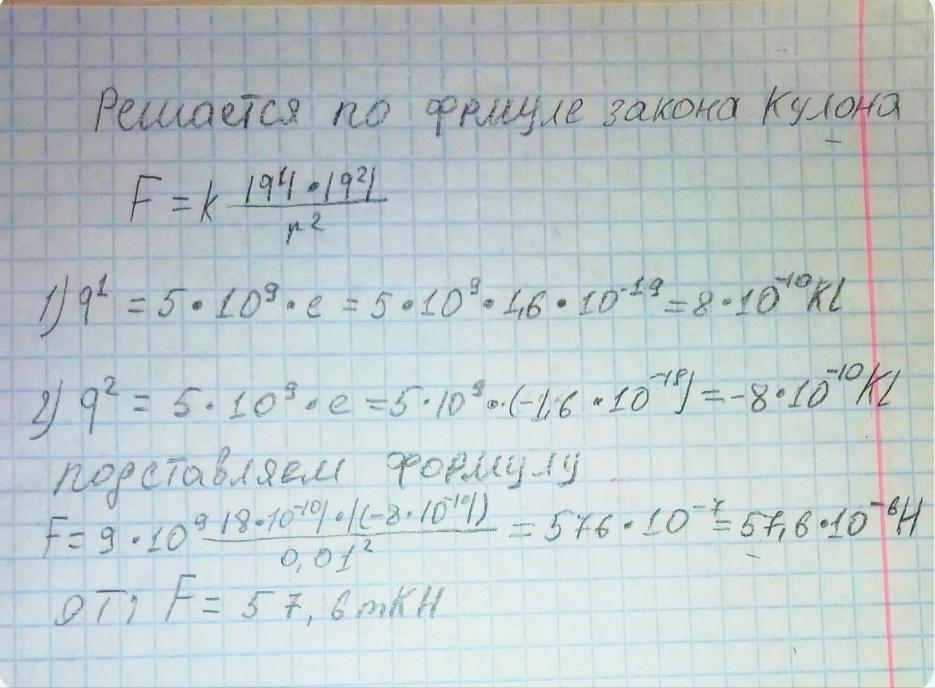 Решается по фрмуле закона Кулона
F = k |q1|•|q2| / r²
1) q¹ = 5•10⁹•e = 5•10⁹•1,6•10⁻¹⁹ = 8•10⁻¹⁰Kl
2) q² = 5•10⁹•e = 5•10⁹•(-1,6•10⁻¹⁹) = -8•10⁻¹⁰Kl
подставляем формулу
F = 9•10⁹ |8•10⁻¹⁰|•|(-8•10⁻¹⁰)| / 0,01² = 576•10⁻⁷ = 57,6•10⁻⁶H
ОТ: F = 57,6 mKH